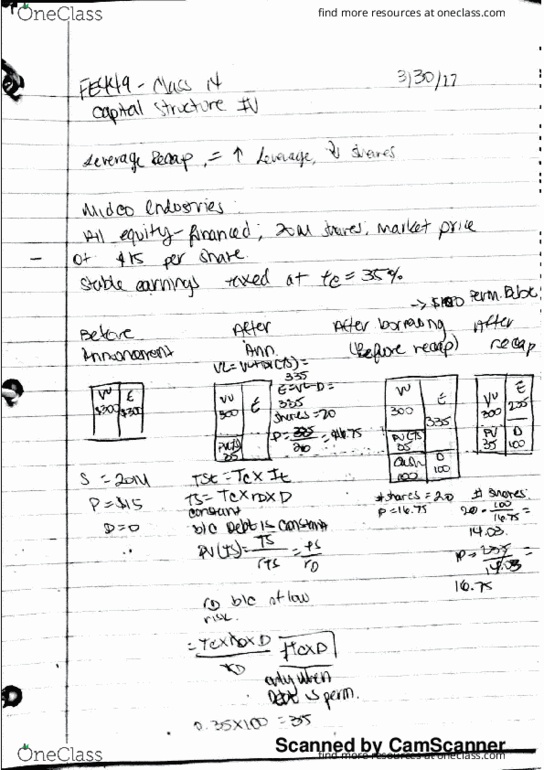 OneClass
find more resources at oneclass.com
FE449 - Class 14
3/30/17
Capital Structure IV
Leverage Recap, = ↑ Leverage, ↓ shares
Midco Industries:
All equity-financed; 20M shares; market price
of $15 per share.
Stable earnings taxed at tc = 35%
→ $100 Perm. Debt
Before
Announcement
After
Ann.
After borrowing
(Before recap)
After
recap
VL = Vu + PV(TS) =
335
E = VL - D =
335
shares = 20
P = 335/20 = $16.75
Vu $300
E $300
Vu 300
E
PV(TS) 35
Vu 300
E 335
PV(TS) 35
D 100
Cash 100
Vu 300
E 235
PV 35
D 100
S = 20M
P = $15
D = 0
TSt = Tc x It
TS = Tc x rD x D
constant
b/c Debt is constant
PV(TS) = TS/rTS = TS/rD
rD b/c of low
risk.
= Tc x rD x D / rD
Tc x D
only when
Debt is perm.
0.35 x 100 = 35
# shares = 20
P = 16.75
# shares
20 - 100/16.75 =
14.03
P = 235/14.03 =
16.75
Scanned by CamScanner
OneClass
find more resources at oneclass.com